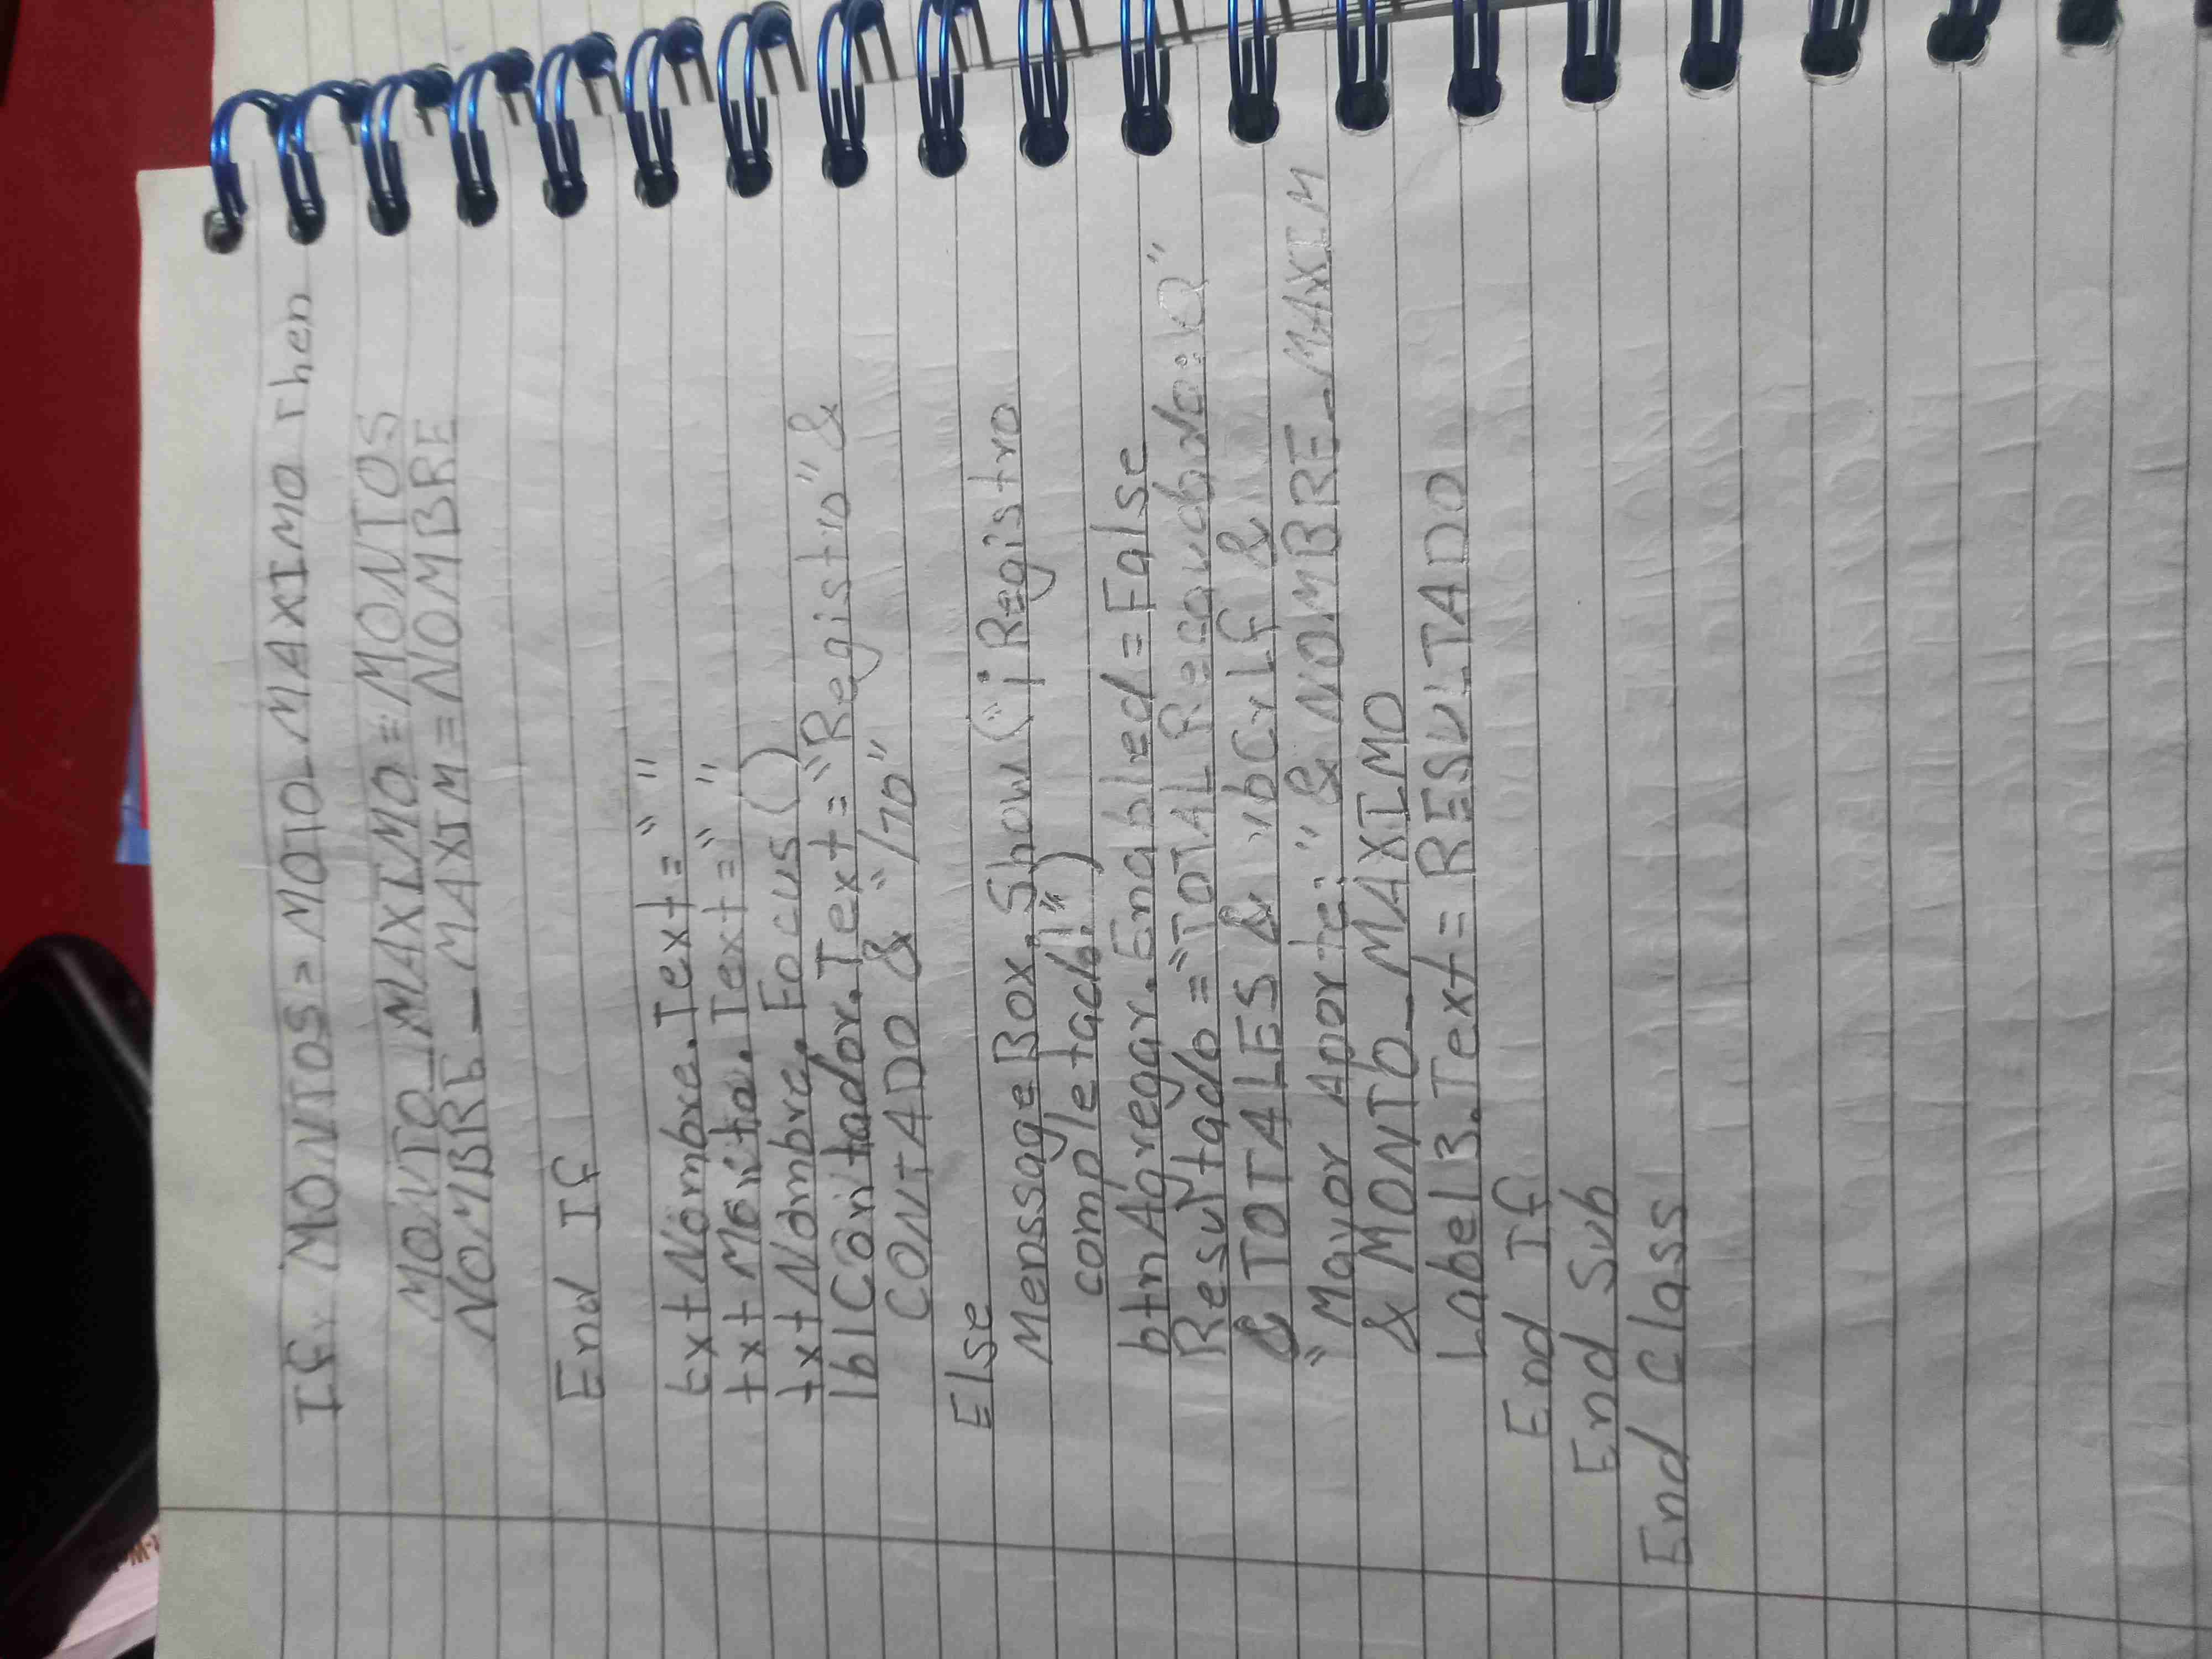 If MONTOS > MOTO_MAXIMO Then
MONTO_MAXIMO = MONTOS
NOMBRE_MAXIM = NOMBRE
End If
txtNombre.Text = " "
txtMonto.Text = " "
txtNombre.Focus()
lblContador.Text = "Registro" &
CONTADO & "/10"
Else
MenssageBox.Show("¡Registro
completado!")
btnAgregar.Enabled = False
Resultado = "TOTAL Recaudado: Q"
& TOTALES & vbCrLf &
"Mayor Aporte: " & NOMBRE_MAXIM
& MONTO_MAXIMO
Label3.Text = RESULTADO
End If
End Sub
End Class